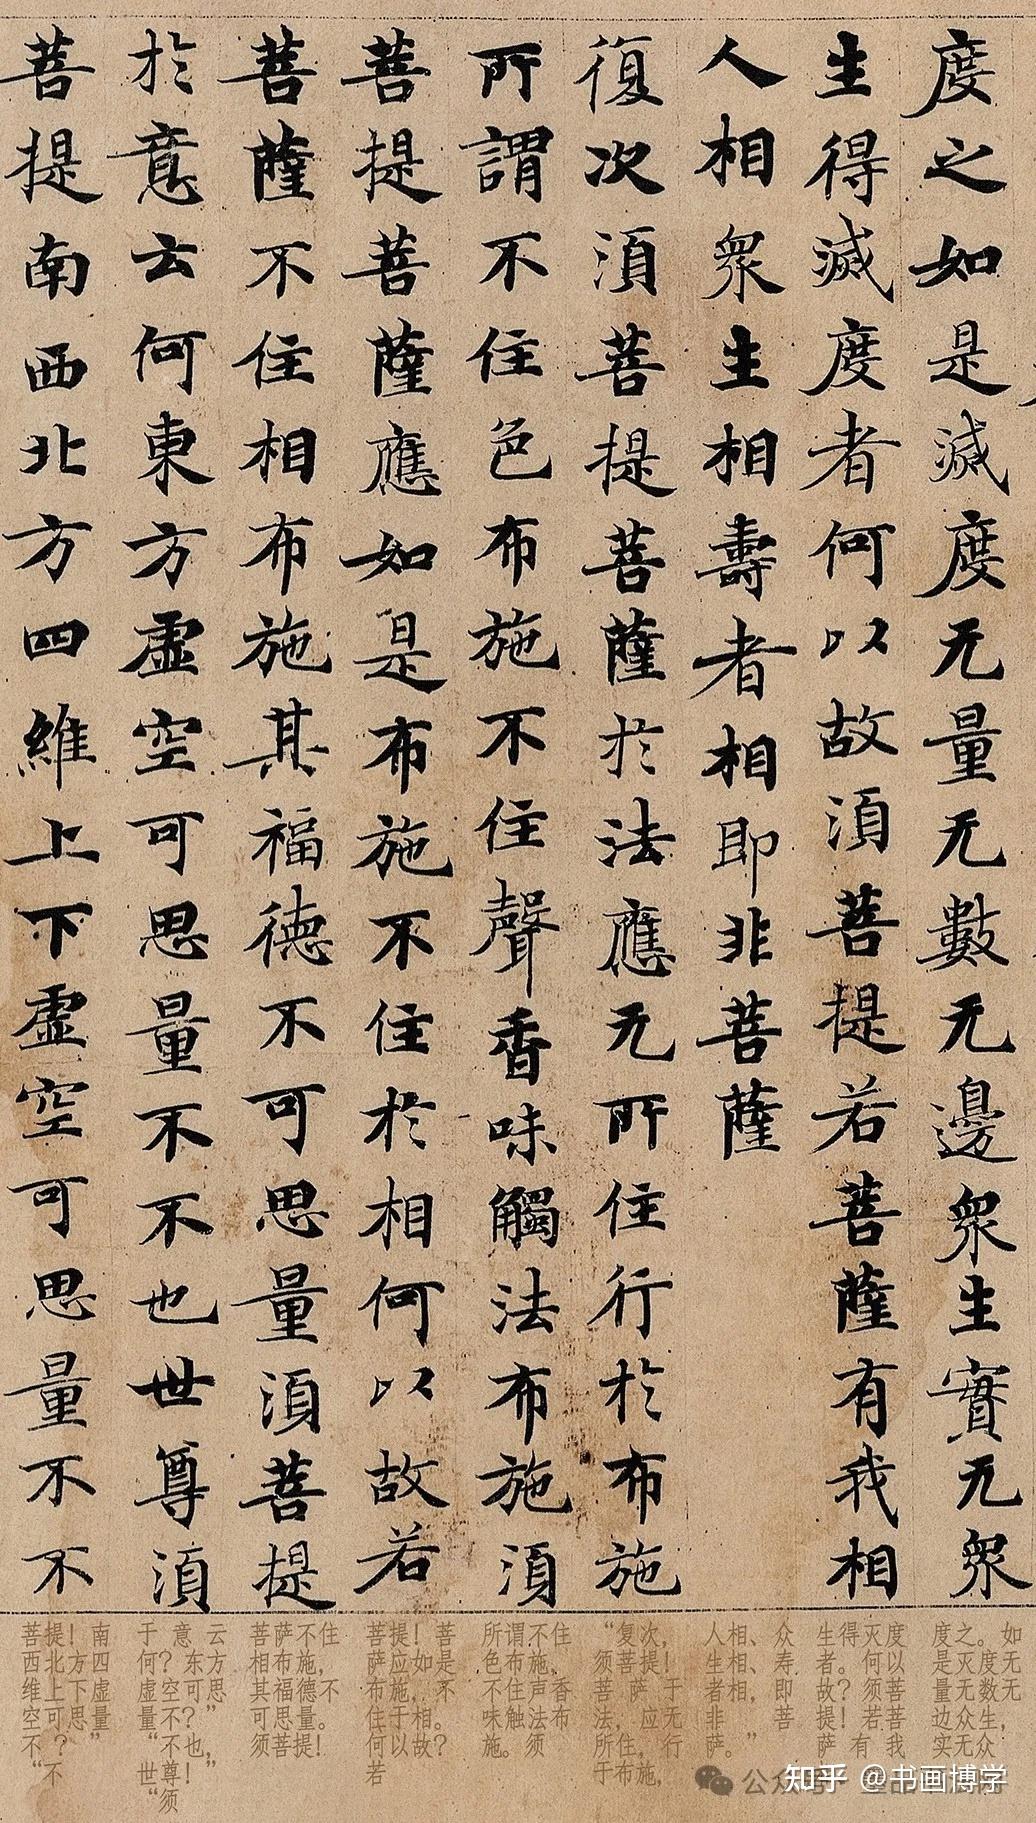 度之如是滅度无量无數无邊眾生實无眾
生得滅度者何以故須菩提若菩薩有我相
人相眾生相壽者相即非菩薩
復次須菩提菩薩於法應无所住行於布施
所謂不住色布施不住聲香味觸法布施須
菩提菩薩應如是布施不住於相何以故若
菩薩不住相布施其福德不可思量須菩提
於意云何東方虛空可思量不不也世尊須
菩提南西北方四維上下虛空可思量不不
度之。如是灭度无量无数无边众生，实无众
生得灭度者。何以故？须菩提！若菩萨有我
人相、众生相、寿者相，即非菩萨。”
“复次，须菩提！菩萨于法，应无所住，行于布施，
所谓不住色布施、不住声香味触法布施。须
菩提！菩萨应如是布施，不住于相。何以故？若
菩萨不住相布施，其福德不可思量。须菩提！
于意云何？东方虚空可思量不？”“不也，世尊！”“须
菩提！南西北方四维上下虚空可思量不？”“不
知乎 @书画博学
公众号